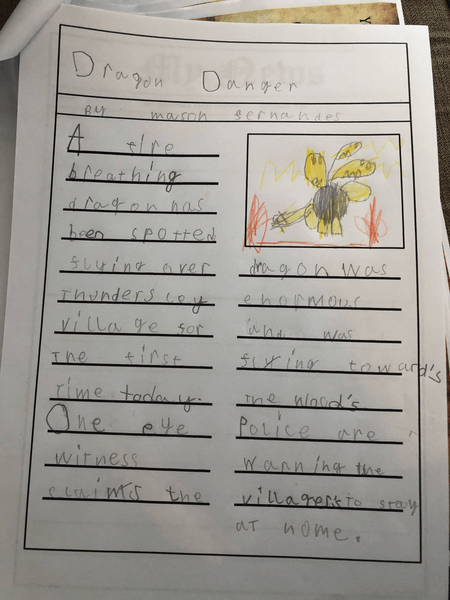 Dragon Danger
By mason fernandes
A fire
breathing
dragon has
been spotted
flying over
Thundersley
village for
The first
Time today.
One eye
witness
claims the
dragon was
enormous
and was
flying toward's
The wood's
Police are
warning the
villagers to stay
at home.